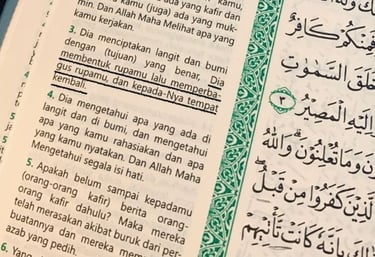 kamu, ada yang kafir dan
min. Dan Allah Maha Melihat apa yang
kamu kerjakan.
3. Dia menciptakan langit dan bumi
dengan (tujuan) yang benar, Dia
membentuk rupamu lalu memperba-
gus rupamu, dan kepada-Nya tempat
kembali.
4. Dia mengetahui apa yang ada di
langit dan di bumi, dan mengetahui
apa yang kamu rahasiakan dan apa
yang kamu nyatakan. Dan Allah Maha
Mengetahui segala isi hati.
5. Apakah belum sampai kepadamu
(orang-orang kafir) berita orang-
orang kafir dahulu? Maka mereka
telah merasakan akibat buruk dari per-
buatannya dan mereka
azab yang pedih.
6. Yang
فَمِنْكُمْ كَافِرٌ
خَلَقَ السَّمٰوٰتِ
٣
اِلَيْهِ الْمَصِيْرُ
وَمَا تُعْلِنُوْنَۗ وَاللّٰهُ
الَّذِيْنَ كَفَرُوْا مِنْ قَبْلُ
بِاَنَّهٗ كَانَتْ تَّأْتِيْهِمْ